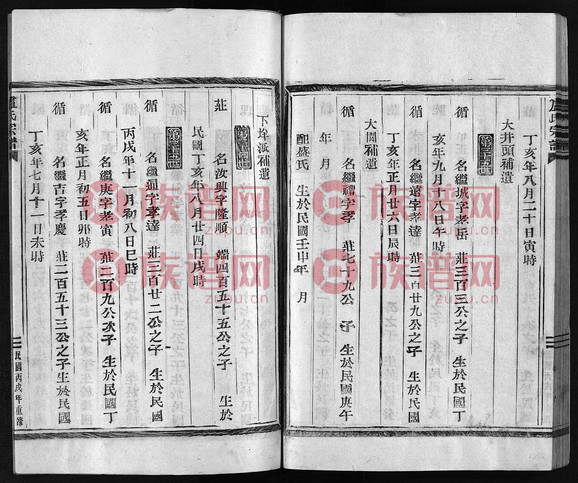 盧氏宗譜
丁亥年八月二十日寅時
大井頭補遺
循 名繼城字孝岳 莊三百三十公之子 生於民國丁
亥年九月十八日午時
循 名繼遠字孝達 莊三百廿九公之子 生於民國
丁亥年正月廿六日辰時
大園補遺
循 名繼禮字孝 莊七十九公 子 生於民國庚午
年 月
配盛氏 生於民國壬申年 月
下垾派補遺
莊 名汝興字隆順 端四百五十五公之子 生於
民國丁亥年八月廿四日戌時
循 名繼 字孝達 莊三百廿二公之子 生於民國
丙戌年十一月初八日巳時
循 名繼庚字孝寅 莊二百九公次子 生於民國丁
亥年正月初五日卯時
循 名繼吉字孝慶 莊二百五十三公之子 生於民國
丁亥年七月十一日未時
盧氏宗譜
民國丙戌年重修
族谱网
zupu.cn
族谱网
zupu.cn